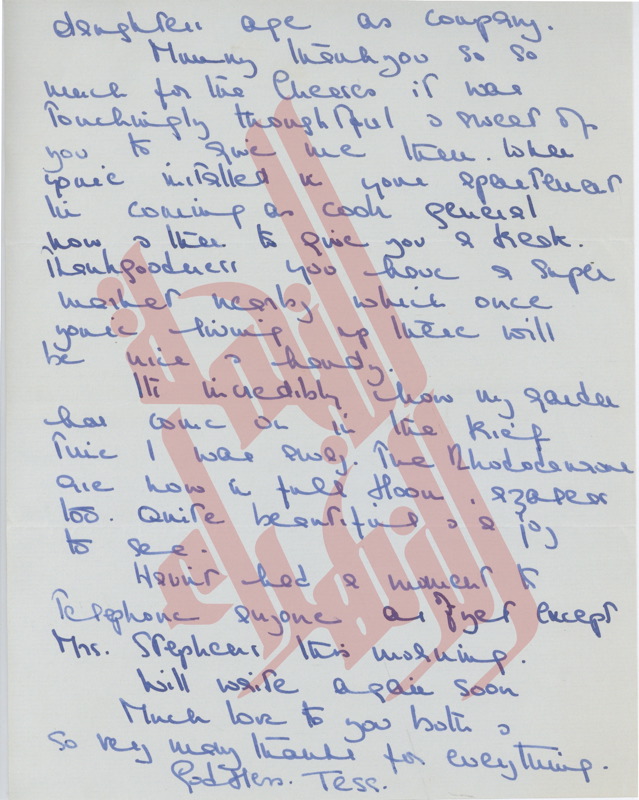 daughters age as company.
Mummy thankyou so so
much for the Cheeses it was
touchingly thoughtful & sweet of
you to give me them. When
youre installed in your apartment
Im coming as cook general
now & then to give you a break.
Thankgoodness you have a super
market nearby which once
youre living up there will
be nice & handy.
Its incredibly how my garden
has come on in the brief
time I was away. The Rhododendrons
are now in full bloom. azaleas
too. Quite beautiful & a joy
to see.
Havnt had a moment to
Telephone anyone as yet except
Mrs. Stephens this morning.
Will write again soon
Much love to you both &
so very many thanks for everything.
Godbless. Tess.
النهضة